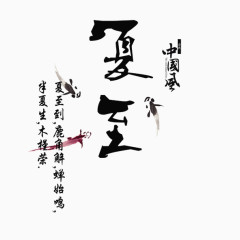 夏至
中國風
夏至到，鹿角解，蝉始鸣，
半夏生，木槿荣。